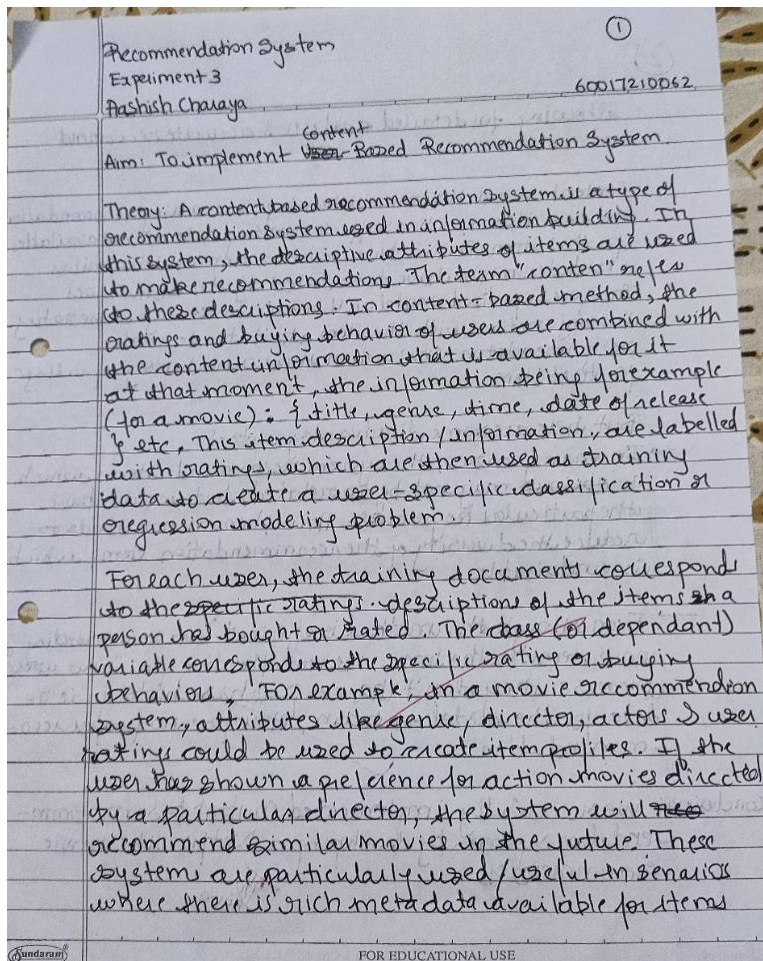 1
Recommendation System
Experiment 3
60017210062
Aashish Charaya
content
Aim: To implement User-Based Recommendation System
Theory: A content based recommendation system is a type of
recommendation system used in information building. In
this system, the descriptive attributes of items are used
to make recommendations. The term "conten" refers
to these descriptions. In content-based method, the
ratings and buying behavior of users are combined with
the content information that is available for it
at that moment, the information being for example
(for a movie): {title, genre, time, date of release
} etc. This item description / information, are labelled
with ratings, which are then used as training
data to create a user-specific classification or
regression modeling problem.
For each user, the training documents corresponds
to the specific ratings. descriptions of the items sh a
person has bought or rated. The class (or dependant)
variable corresponds to the specific rating or buying
behaviors, For example, in a movie reccommendion
system, attributes like genre, director, actors & user
ratings could be used to create item profiles. If the
user has shown a preference for action movies directed
by a particular director, the system will reo
recommend similar movies in the future. These
system are particularly used / useful in senarios
where there is rich meta data available for items
Sundaram
FOR EDUCATIONAL USE